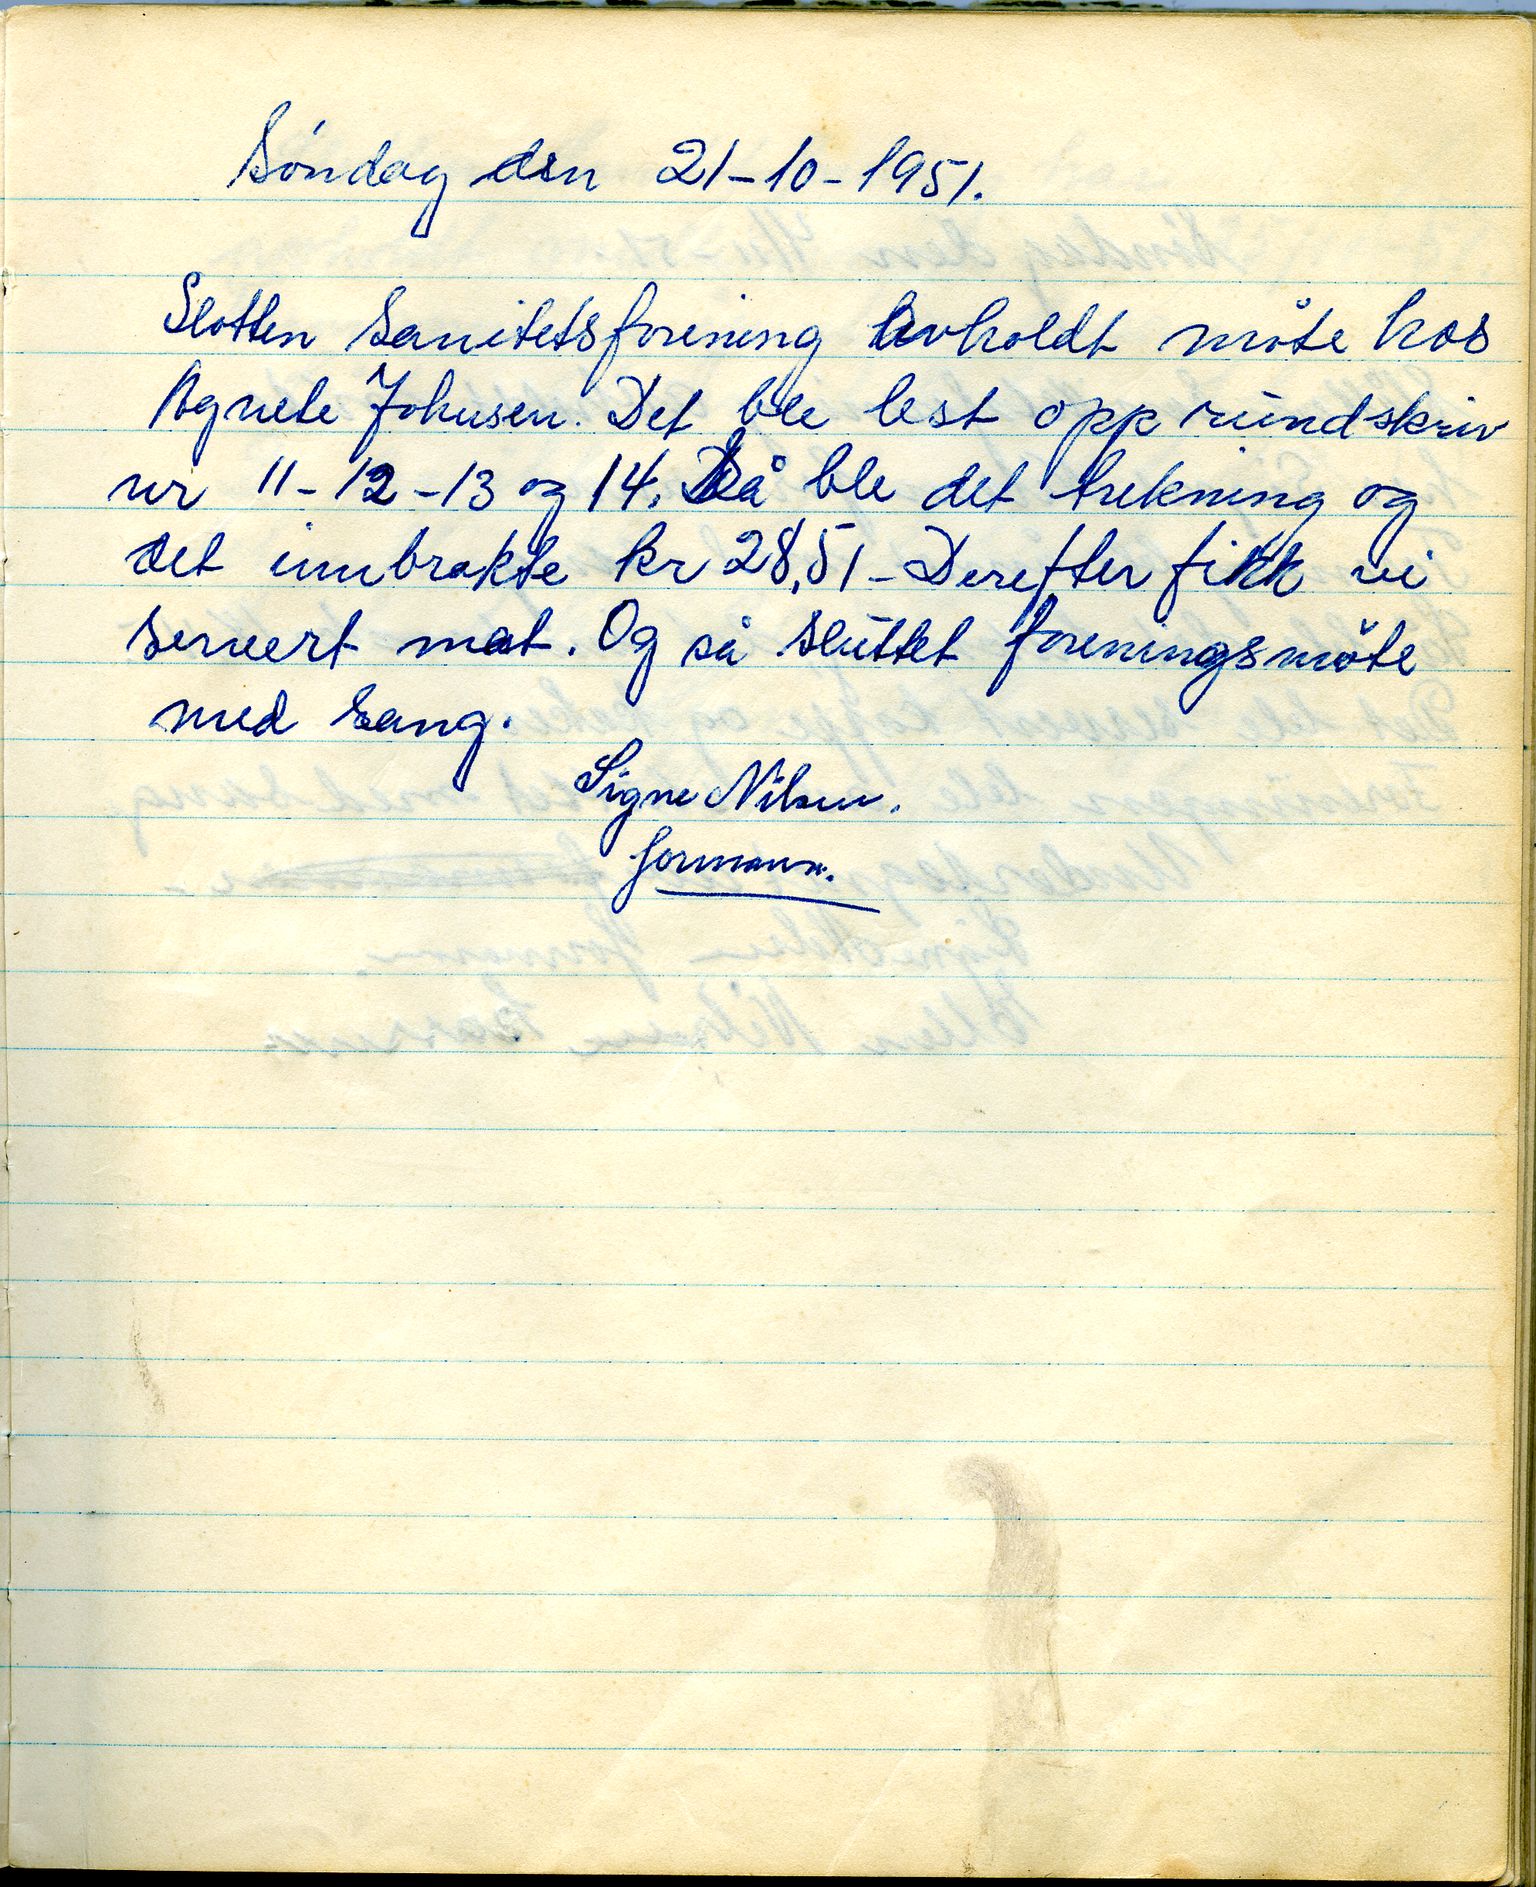 Søndag den 21-10-1951.
Slotten Sanitetsforening avholdt møte hos
Agnete Johnsen. Det ble lest opp rundskriv
nr 11-12-13 og 14. Så ble det trekning og
det innbrakte kr 28,51 - Derefter fikk vi
servert mat. Og så sluttet foreningsmøte
med sang.
Signe Nilsen.
formann.